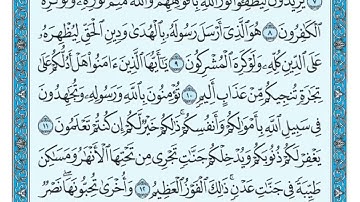 ٧ يُرِيدُونَ لِيُطْفِـُٔوا۟ نُورَ ٱللَّهِ بِأَفْوَٰهِهِمْ وَٱللَّهُ مُتِمُّ نُورِهِۦ وَلَوْ كَرِهَ
ٱلْكَٰفِرُونَ ٨ هُوَ ٱلَّذِىٓ أَرْسَلَ رَسُولَهُۥ بِٱلْهُدَىٰ وَدِينِ ٱلْحَقِّ لِيُظْهِرَهُۥ
عَلَى ٱلدِّينِ كُلِّهِۦ وَلَوْ كَرِهَ ٱلْمُشْرِكُونَ ٩ يَٰٓأَيُّهَا ٱلَّذِينَ ءَامَنُوا۟ هَلْ أَدُلُّكُمْ عَلَىٰ
تِجَٰرَةٍ تُنجِيكُم مِّنْ عَذَابٍ أَلِيمٍ ١٠ تُؤْمِنُونَ بِٱللَّهِ وَرَسُولِهِۦ وَتُجَٰهِدُونَ
فِى سَبِيلِ ٱللَّهِ بِأَمْوَٰلِكُمْ وَأَنفُسِكُمْ ذَٰلِكُمْ خَيْرٌ لَّكُمْ إِن كُنتُمْ تَعْلَمُونَ ١١
يَغْفِرْ لَكُمْ ذُنُوبَكُمْ وَيُدْخِلْكُمْ جَنَّٰتٍ تَجْرِى مِن تَحْتِهَا ٱلْأَنْهَٰرُ وَمَسَٰكِنَ
طَيِّبَةً فِى جَنَّٰتِ عَدْنٍ ذَٰلِكَ ٱلْفَوْزُ ٱلْعَظِيمُ ١٢ وَأُخْرَىٰ تُحِبُّونَهَا نَصْرٌ